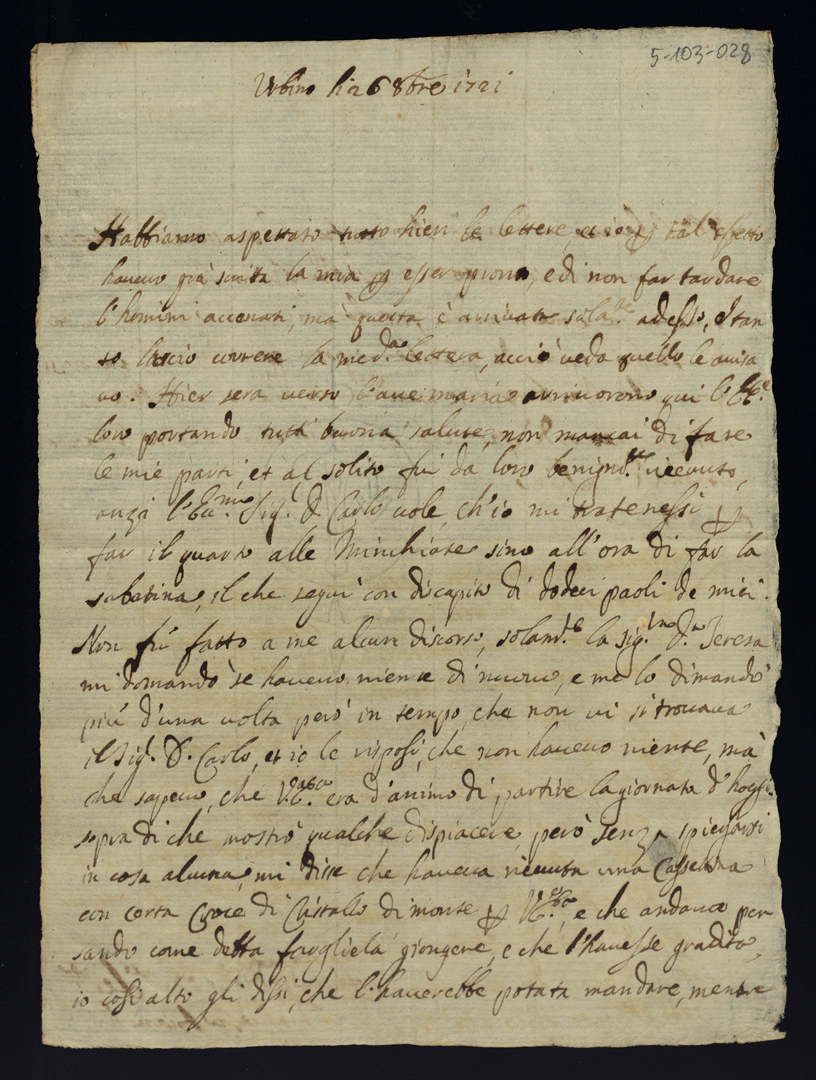 5-103-028
Urbino li 26 8bre 1721
Habbiamo aspettato tutto hieri le lettere, et io p tal effetto
havevo già scritta la mia p esser pronto, e di non far tardare
l'homini accenati, mà questa è arrivata sola.te adesso, e tan
to lascio correre la med.ma lettera, acciò veda quello le avisa
vo. Hier sera verso l'ave maria arrivorono qui l'
loro portando tutti buona salute, non mancai di fare
le mie parti, et al solito fui da loro benign.te ricevuto,
anzi l'Ecc.mo Sig.r D. Carlo vole, ch'io mi tratenessi p
far il quarto alle Minchiate sino all'ora di far la
sabatina, il che seguì con discapito di dodeci paoli de miei.
Non fù fatto a me alcun discorso, solam.te la Sig.ra D.a Teresa
mi domandò se havevo niente di nuovo, e me lo dimandò
più d'una volta però in tempo, che non vi si trovava
il Sig.r D. Carlo, et io le risposi, che non havevo niente, mà
che sapevo, che era d'animo di partire la giornata d'hoggi
sopra di che mostrò qualche dispiacere però senza spiegarsi
in cosa alcuna, mi disse che haveva ricevuta una Cassettina
con certa Croce di Cristallo di monte p e che andava pen
sando come detta fargliela giongere, e che l'havesse gradita,
io così alto gli dissi, che l'haverebbe potuta mandare, mentre